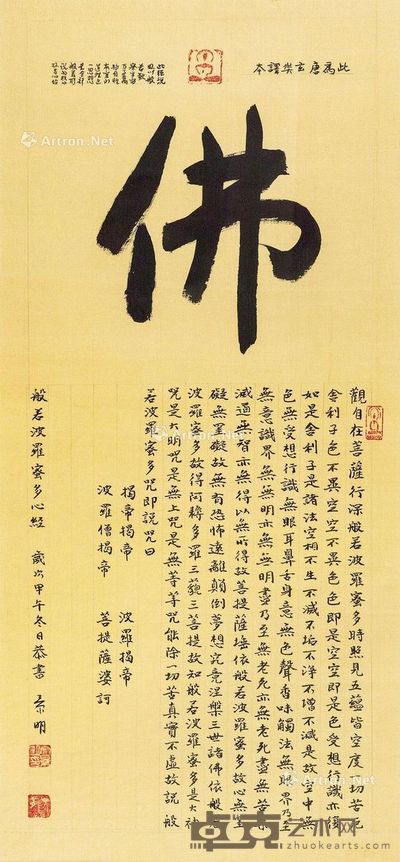 此為唐玄奘譯本
佛
觀自在菩薩行深般若波羅蜜多時照見五蘊皆空度一切苦厄
舍利子色不異空空不異色色即是空空即是色受想行識亦復
如是舍利子是諸法空相不生不滅不垢不淨不增不減是故空中無
色無受想行識無眼耳鼻舌身意無色聲香味觸法無眼界乃至
無意識界無無明亦無無明盡乃至無老死亦無老死盡無苦集
滅道無智亦無得以無所得故菩提薩埵依般若波羅蜜多故心無罣
礙無罣礙故無有恐怖遠離顛倒夢想究竟涅槃三世諸佛依般若
波羅蜜多故得阿耨多羅三藐三菩提故知般若波羅蜜多是大神
咒是大明咒是無上咒是無等等咒能除一切苦真實不虛故說般
若波羅蜜多咒即說咒曰
揭帝揭帝 波羅揭帝
波羅僧揭帝 菩提薩婆訶
般若波羅蜜多心經 歲次甲午冬日恭書 景明
Artron.Net
Artron.Net
卓克艺术网
zhuokearts.com